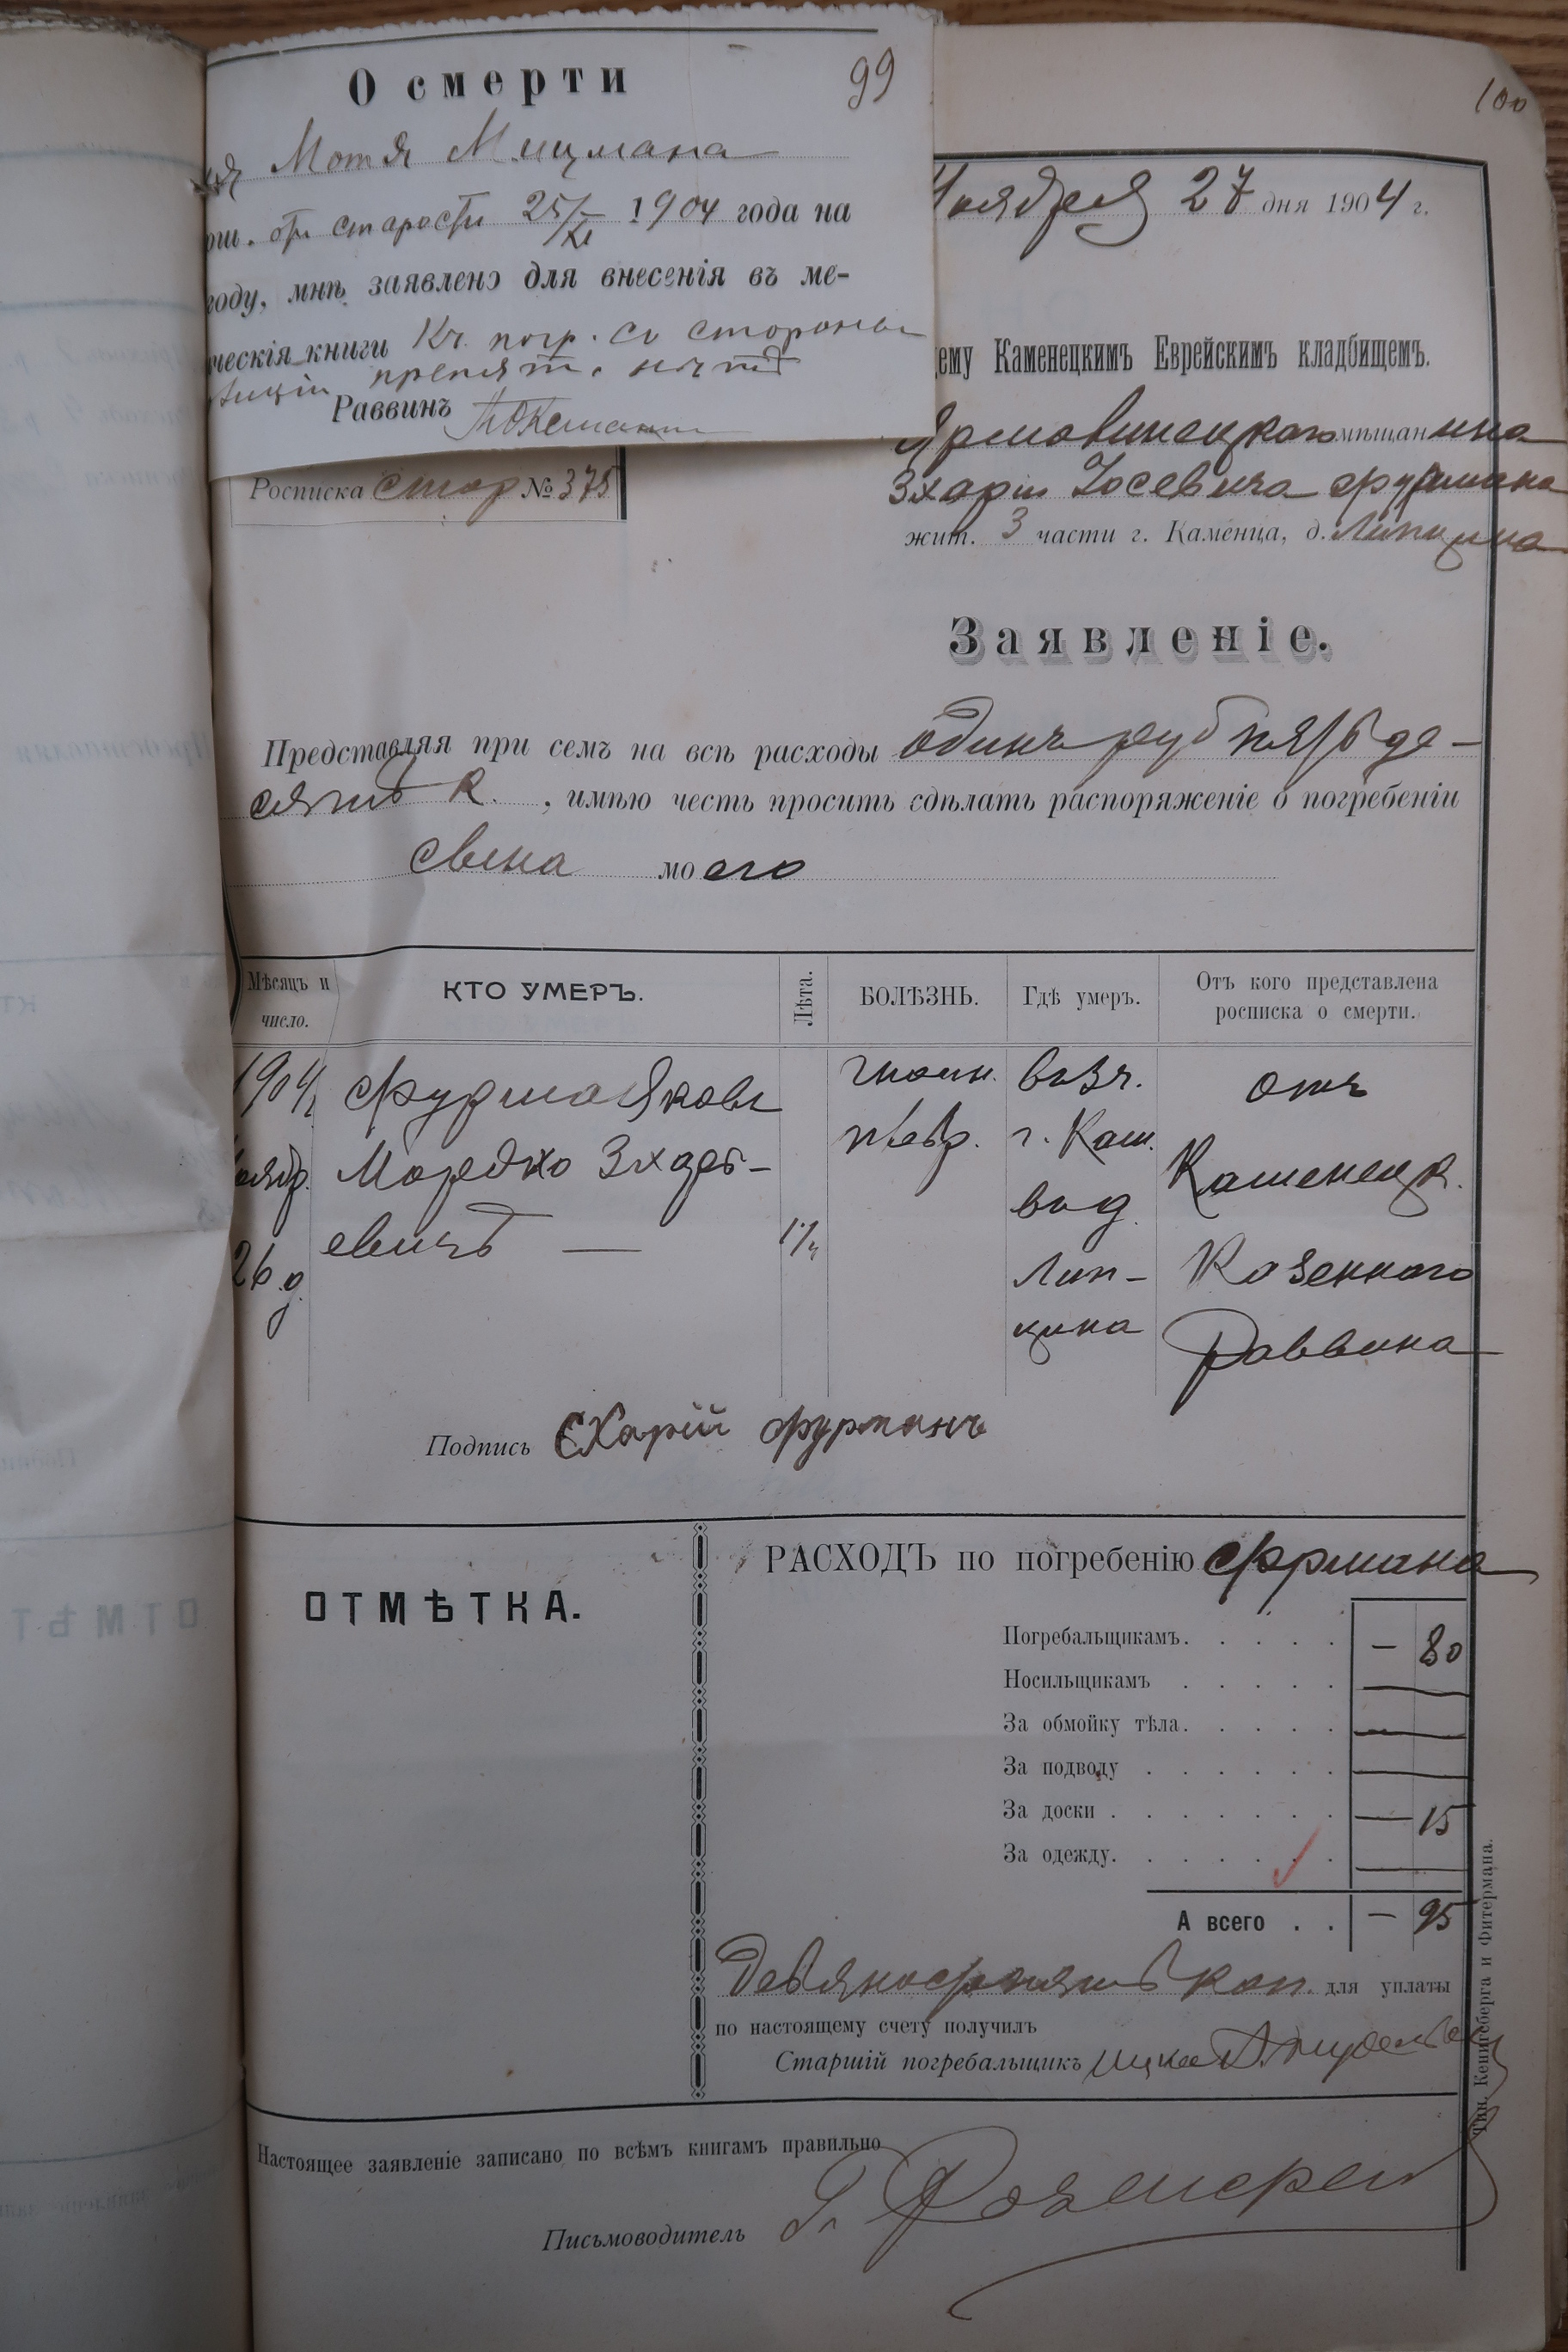 О смерти
99
Мотя Мицмана
ош. отъ старости 25/XI 1904 года на
году, мнѣ заявлено для внесенія въ ме-
ческія книги Къ погр. со стороны
препятст. нѣтъ
Раввинъ
100
Ноября 27 дня 1904 г.
ему Каменецкимъ Еврейскимъ кладбищемъ.
Росписка стор № 375
Ярмовинецкаго мѣщанина
Зхаріи Іосевича Фурмана
жит. 3 части г. Каменца, д. Липцина
Заявленіе.
Представляя при семъ на всѣ расходы одинъ руб пятьде-
сятъ к., имѣю честь просить сдѣлать распоряженіе о погребеніи
сына моего
Мѣсяцъ и число.
КТО УМЕРЪ.
Лѣта.
БОЛѢЗНЬ.
Гдѣ умеръ.
Отъ кого представлена росписка о смерти.
1904
Ноябр.
26 д.
Фурма Яковъ
Мордко Зхарь-
евичъ —
1 1/4
гнойн.
плевр.
въ 3 ч.
г. Кам.
въ д.
Лип-
цина
отъ
Каменецк.
Казеннаго
Раввина
Подпись СХарій Фурманъ
ОТМѢТКА.
РАСХОДЪ по погребенію Фрмана
Погребальщикамъ. . . . . — 80
Носильщикамъ . . . . . —
За обмойку тѣла. . . . . —
За подводу . . . . . . —
За доски . . . . . . . — 15
За одежду. . . . . . . —
А всего . . — 95
Девяностопять коп. для уплаты
по настоящему счету получилъ
Старшій погребальщикъ Ицко
Настоящее заявленіе записано по всѣмъ книгамъ правильно
Письмоводитель
Тип. Кенигсберга и Фитермана.